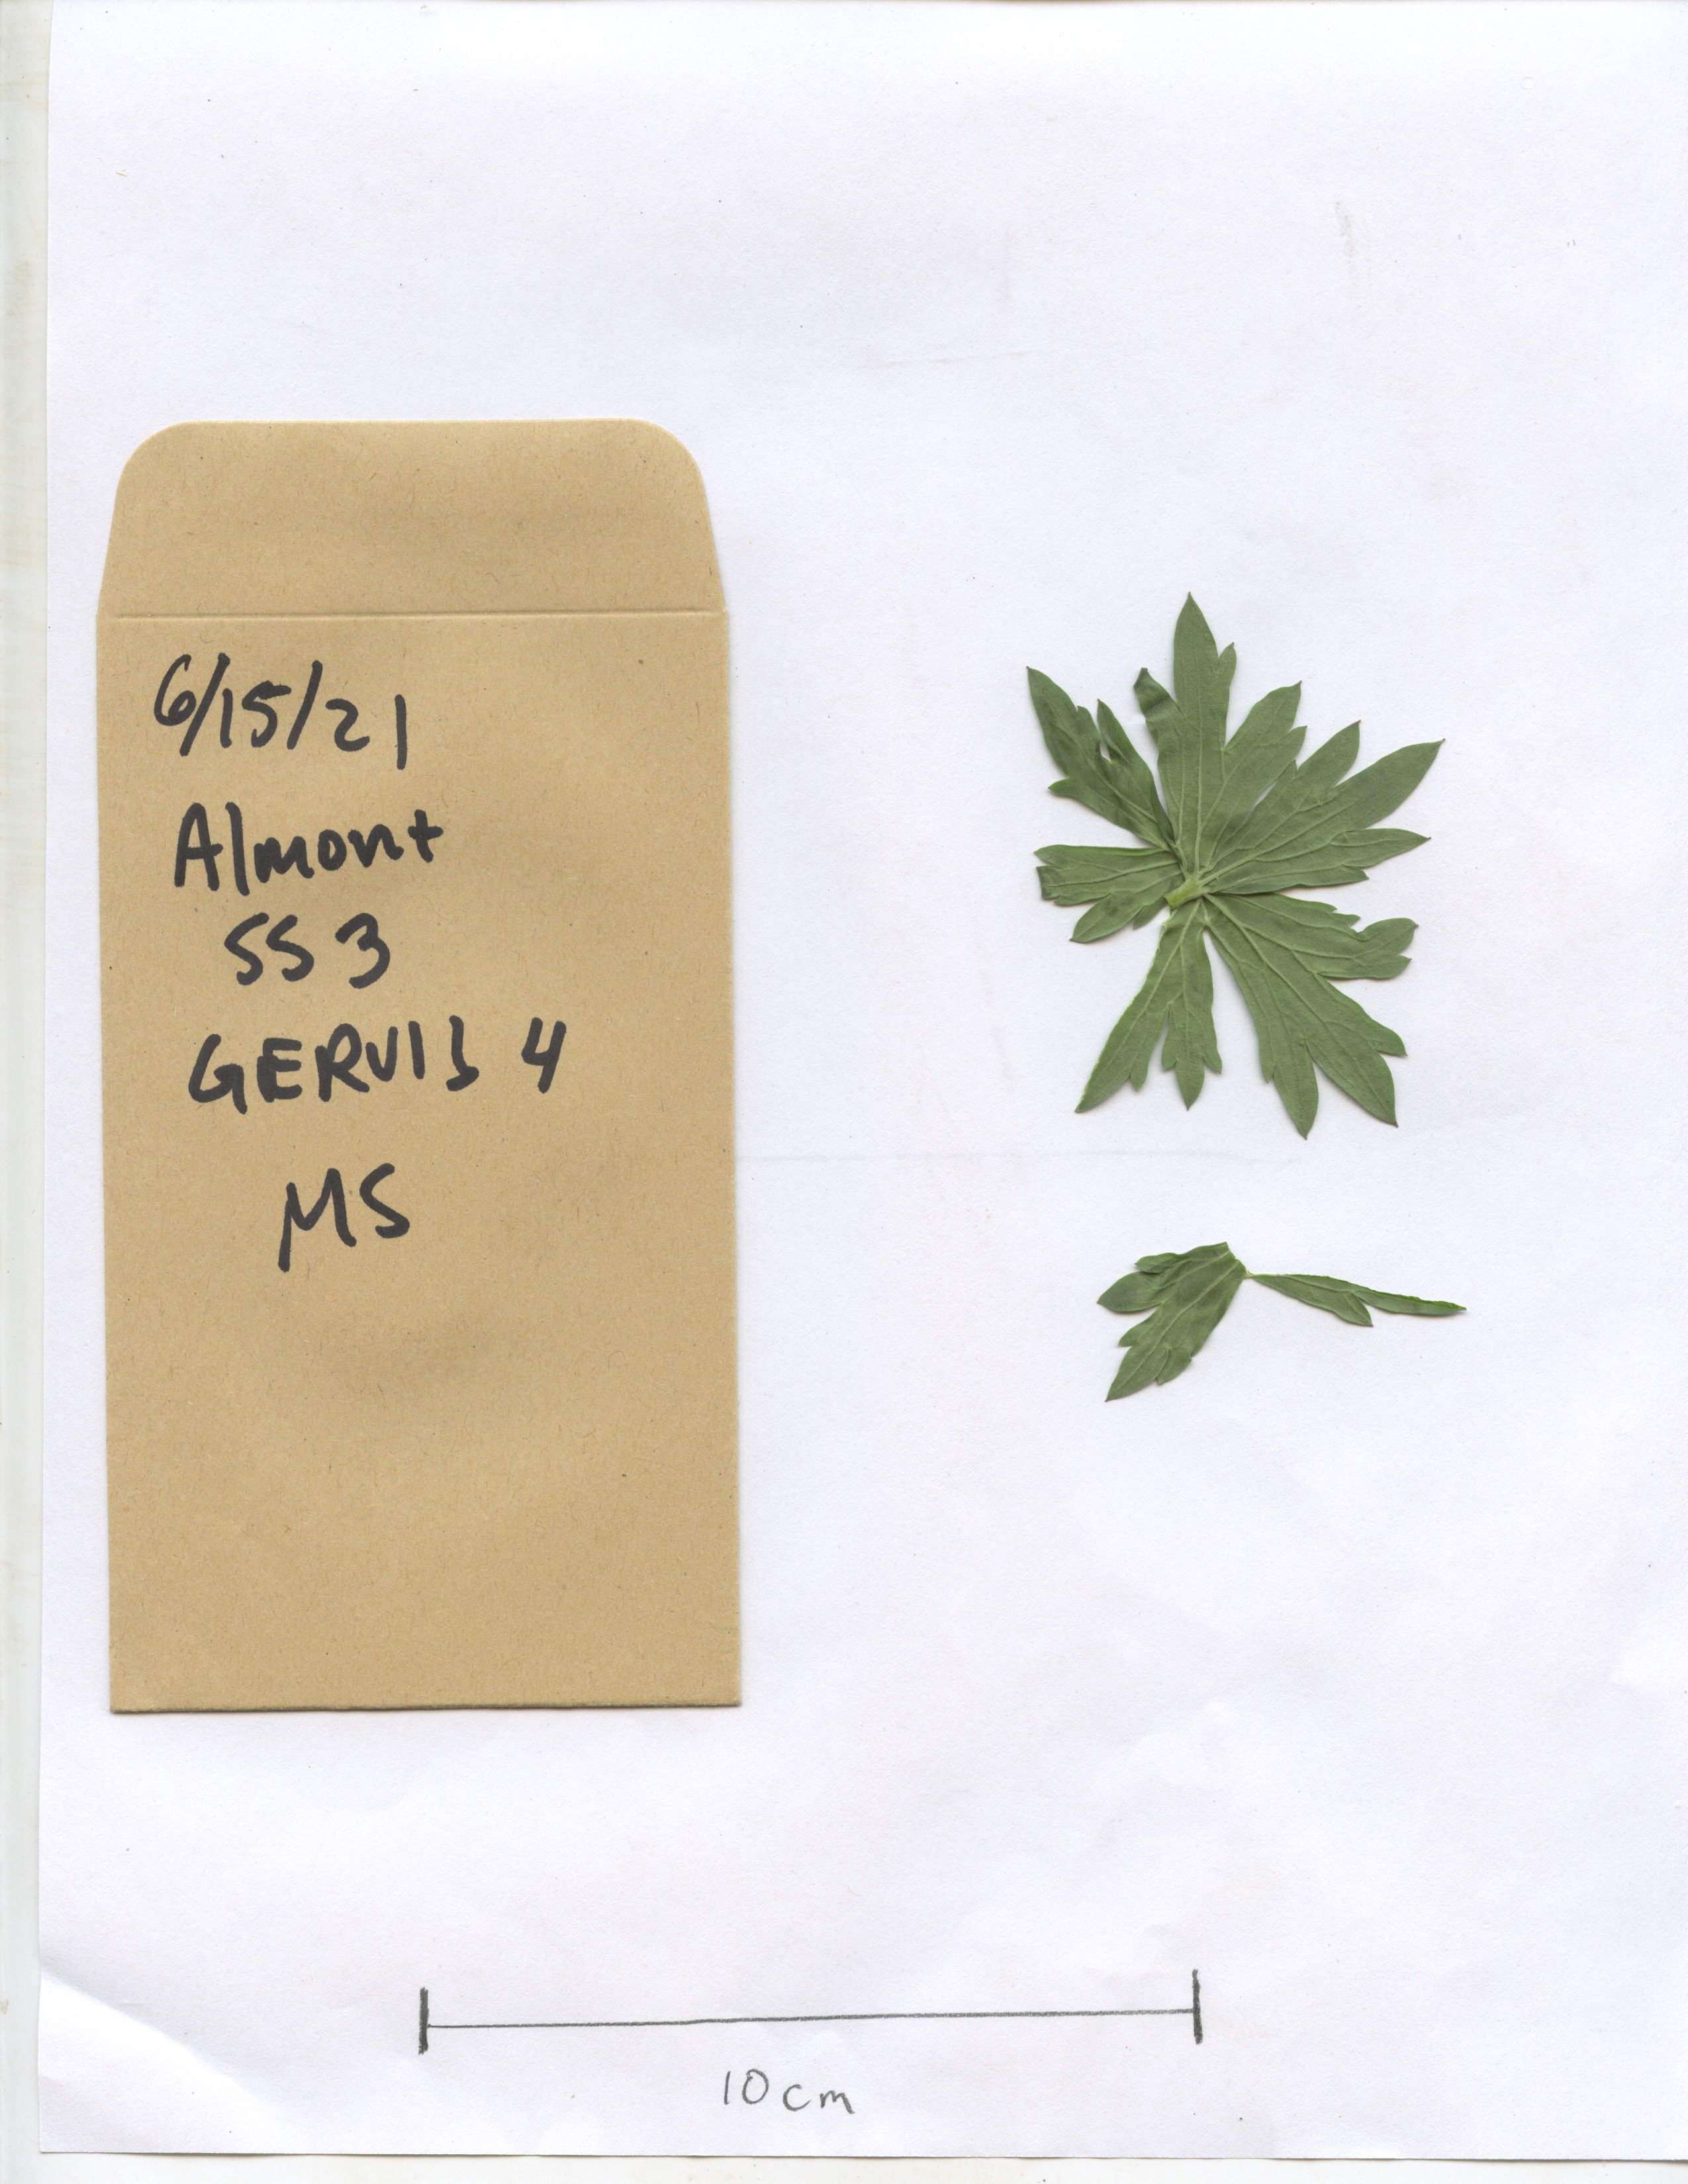 6/15/21
Almont
SS 3
GERVIS 4
MS
10 cm